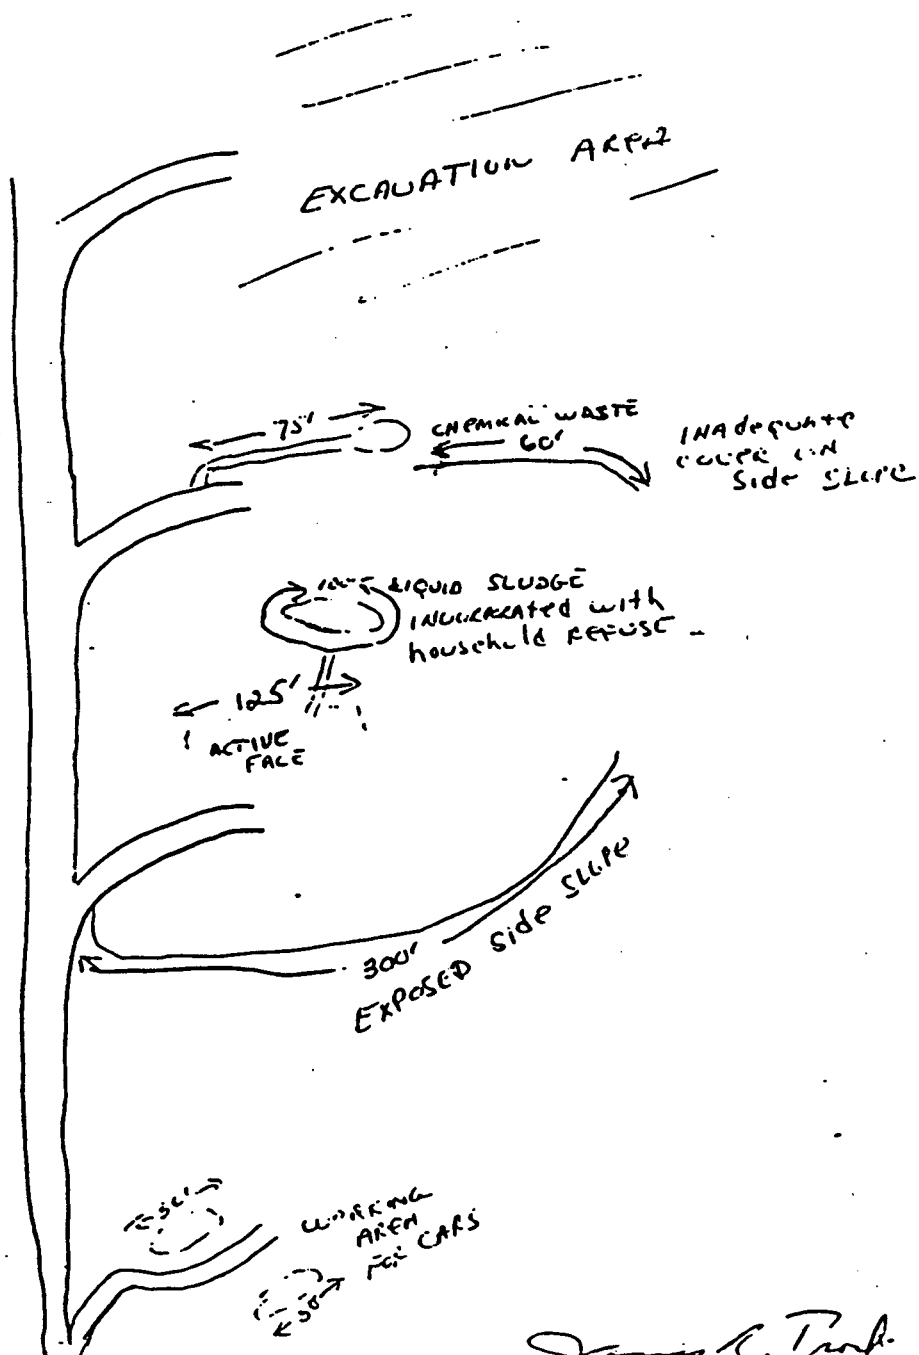 EXCAVATION AREA
75'
CHEMICAL WASTE
60'
INAdequate
COVER ON
Side SLOPE
LIQUID SLUDGE
INCORPORATED with
household REFUSE
125'
ACTIVE
FACE
300'
EXPOSED Side SLOPE
WORKING
AREA
FOR CARS